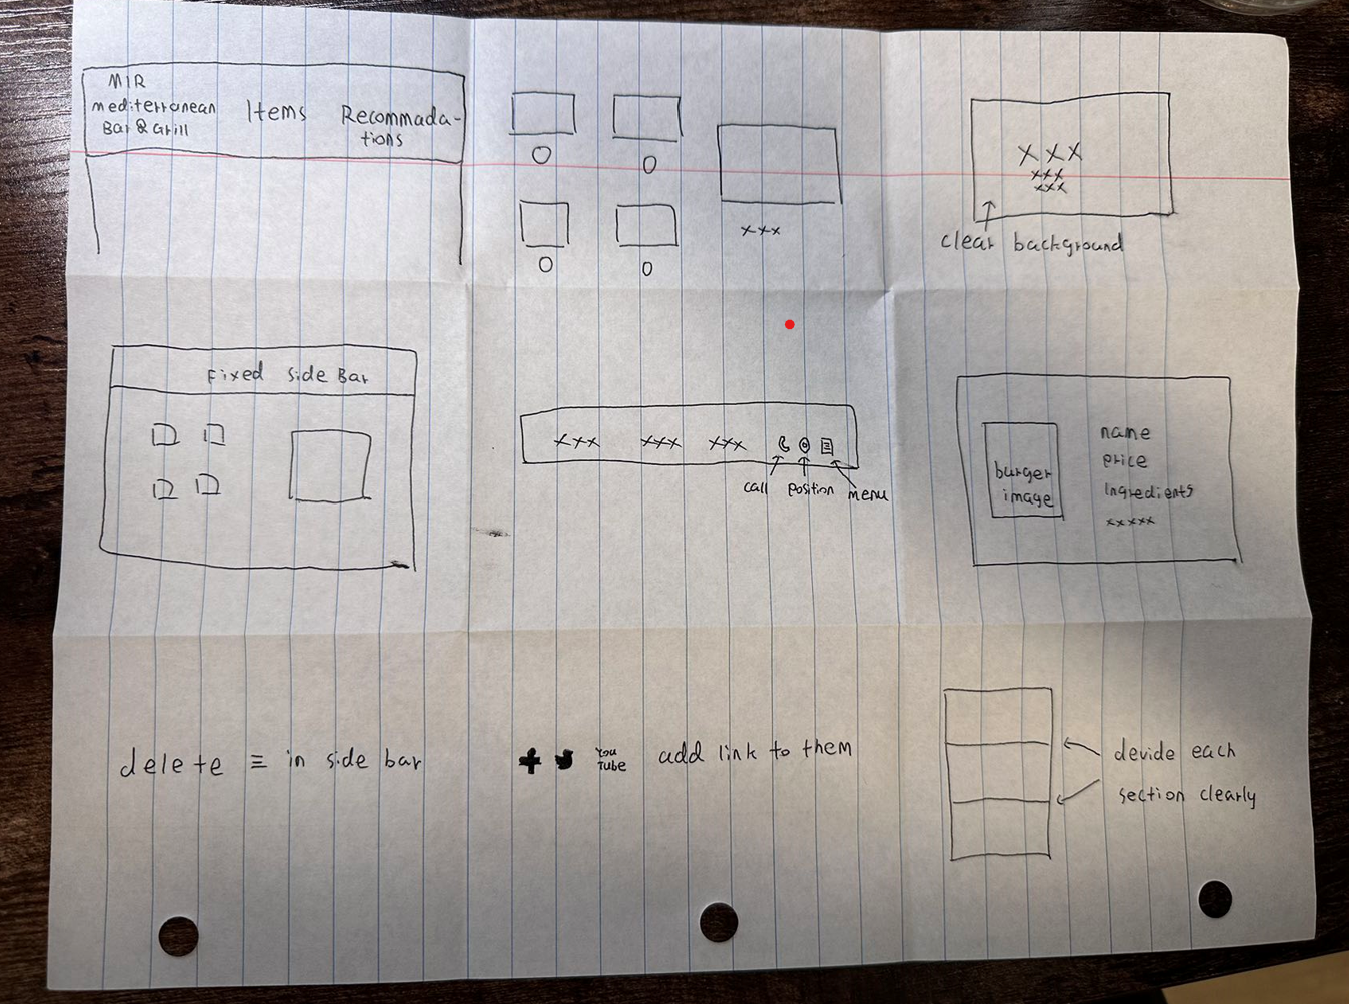 MIR
mediterranean
Bar & Grill
Items
Recommada-
tions
xxx
XXX
xxx
xxx
clear background
Fixed Side Bar
xxx xxx xxx
call position menu
burger
image
name
price
Ingredients
xxxxx
delete ≡ in side bar
You
Tube
add link to them
devide each
section clearly